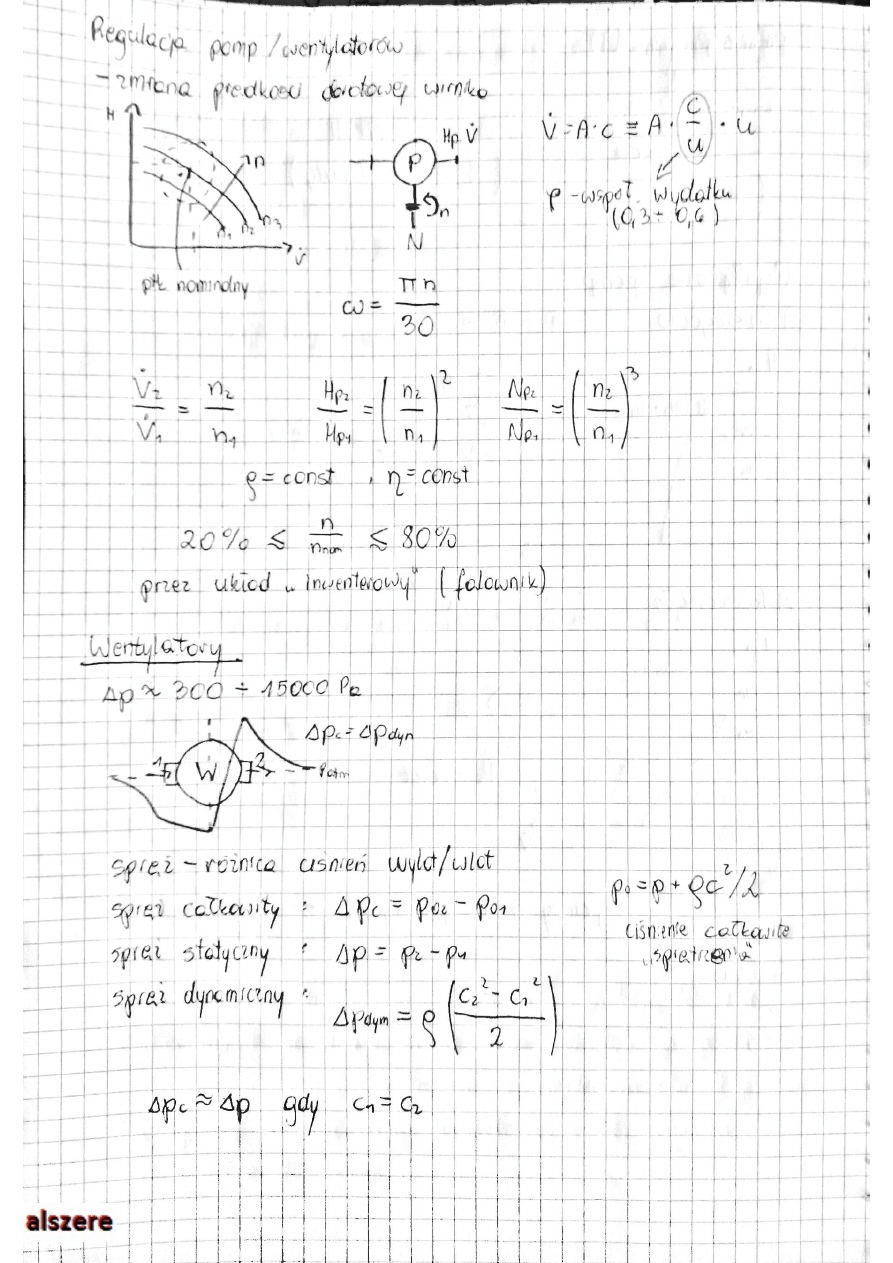 Regulacja pomp/wentylatorów
- zmiana prędkości obrotowej wirnika
H
n
n₁ n₂ n₃
V̇
pkt. nominalny
P
Hp V̇
n
N
V̇ = A·c ≡ A · c/u · u
φ - współ. wydatku
(0,3 ÷ 0,6)
ω = πn/30
V̇₂/V̇₁ = n₂/n₁ Hp₂/Hp₁ = (n₂/n₁)² Np₂/Np₁ = (n₂/n₁)³
ρ = const, η = const
20% ≤ n/nnom ≤ 80%
przez układ „inwenterowy" (falownik)
Wentylatory
Δp ≈ 300 ÷ 15000 Pa
Δpc = Δpdyn
1 W 2
Patm
spręż - różnica ciśnień wylot/wlot
spręż całkowity : Δpc = p02 - p01
spręż statyczny : Δp = p₂ - p₁
spręż dynamiczny :
Δpdym = ρ (c₂² - c₁² / 2)
p₀ = p + ρc²/2
ciśnienie całkowite
„spiętrzenia"
Δpc ≈ Δp gdy c₁ = c₂
alszere